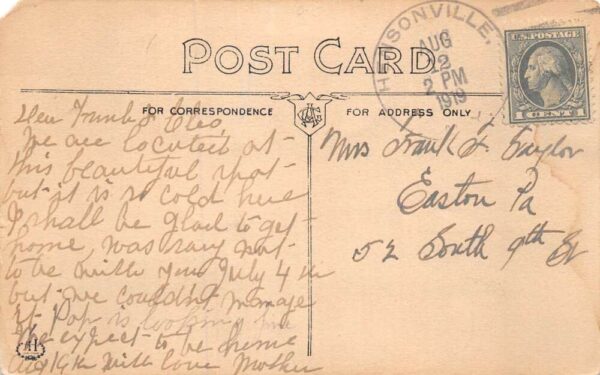 POST CARD
HENSONVILLE,
AUG
2
2 PM
1919
U.S. POSTAGE
1 CENT 1
FOR CORRESPONDENCE
FOR ADDRESS ONLY
Dear Frank & Cleo,
We are located at
this beautiful spot
but it is so cold here
I shall be glad to get
home, was sorry not
to be with you July 4th
but we couldn't manage
it Pop is looking fine
We expect to be home
Aug 19th With love Mother
Mrs Frank L Taylor
Easton Pa
52 South 9th St